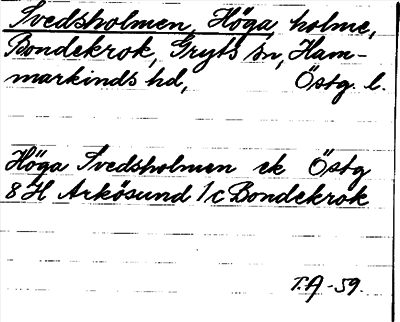 Svedsholmen, Höga, holme,
Bondekrok, Gryts sn, Ham-
markinds hd, Östg. l.
Höga Svedsholmen ek Östg
8 H Arkösund 1/c Bondekrok
T.A -59.